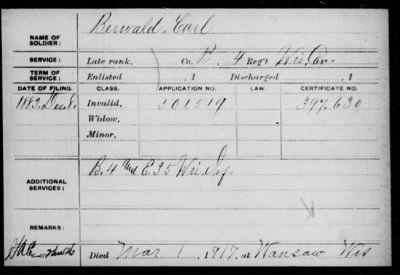 NAME OF SOLDIER: Berwald, Carl
SERVICE: Late rank, Co. B. 4 Reg't Wis. Cav.
TERM OF SERVICE: Enlisted , 1 Discharged , 1
DATE OF FILING. CLASS. APPLICATION NO. LAW. CERTIFICATE NO.
1883, Dec. 8. Invalid, 501319 397.630
Widow,
Minor,
ADDITIONAL SERVICES: B. 4 and E. 35 Wis. Inf.
REMARKS:
Died Mar 1, 1917, at Wausau Wis